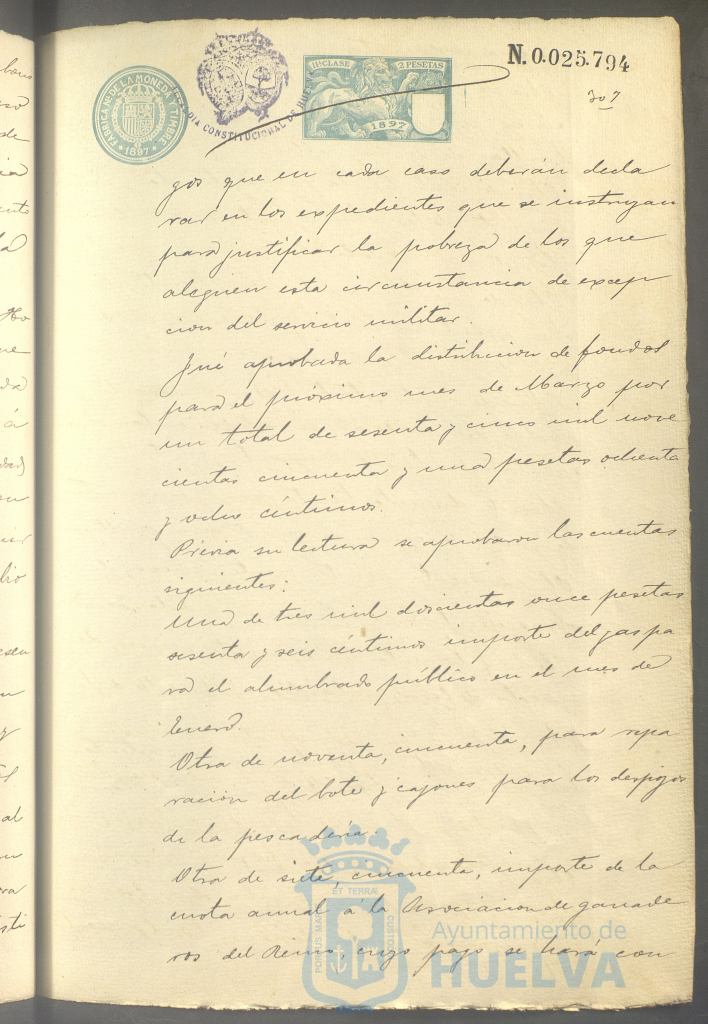 FABRICA N. DE LA MONEDA Y TIMBRE
* 1897 *
DIA CONSTITUCIONAL DE HUE
11ª CLASE 2 PESETAS
1897
N.0.025.794
307
gos que en cada caso deberán decla
rar en los expedientes que se instruyan
para justificar la pobreza de los que
aleguen esta circunstancia de excep
cion del servicio militar.
Fué aprobada la distribucion de fondos
para el próximo mes de Marzo por
un total de sesenta y cinco mil nove
cientas cincuenta y una pesetas ochenta
y ocho céntimos.
Prévia su lectura se aprobaron las cuentas
siguientes:
Una de tres mil doscientas once pesetas
sesenta y seis céntimos importe del gas pa
ra el alumbrado público en el mes de
Enero.
Otra de noventa, cincuenta, para repa
racion del bote y cajones para los despojos
de la pescaderia.
Otra de siete, cincuenta, importe de la
cuota anual á la Asociacion de ganade
ros del Reino, cuyo pago se hará con
PORTUS MARIS ET TERRAE CUSTODIA
Ayuntamiento de
HUELVA